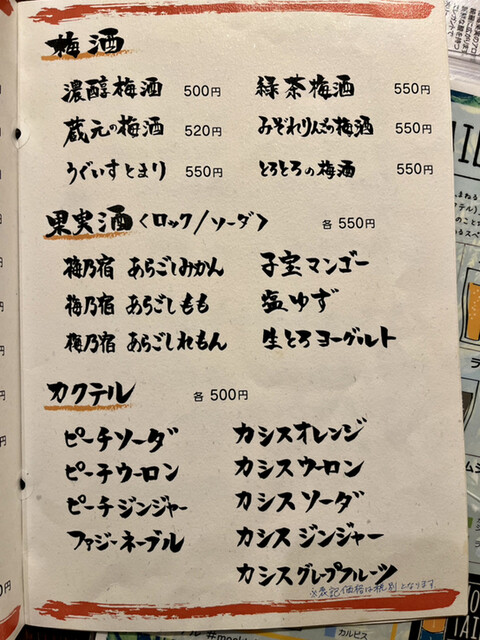 梅酒
濃醇梅酒 500円 緑茶梅酒 550円
蔵元の梅酒 520円 みぞれりんごの梅酒 550円
うぐいすとまり 550円 とろとろの梅酒 550円
果実酒〈ロック/ソーダ〉 各 550円
梅乃宿 あらごしみかん 子宝マンゴー
梅乃宿 あらごしもも 塩ゆず
梅乃宿 あらごしれもん 生とろヨーグルト
カクテル 各 500円
ピーチソーダ カシスオレンジ
ピーチウーロン カシスウーロン
ピーチジンジャー カシスソーダ
ファジーネーブル カシスジンジャー
カシスグレープフルーツ
※表記価格は税別となります
カルピス